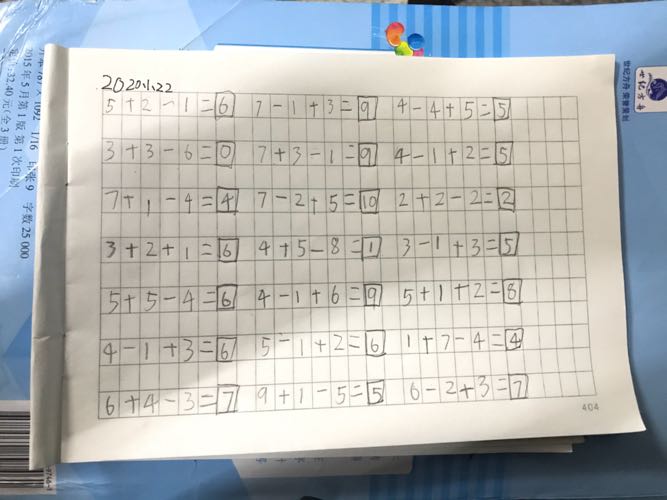 2020.1.22
5+2-1=6 7-1+3=9 4-4+5=5
3+3-6=0 7+3-1=9 4-1+2=5
7+1-4=4 7-2+5=10 2+2-2=2
3+2+1=6 4+5-8=1 3-1+3=5
5+5-4=6 4-1+6=9 5+1+2=8
4-1+3=6 5-1+2=6 1+7-4=4
6+4-3=7 9+1-5=5 6-2+3=7
404
世纪方舟 荣誉策划
世纪方舟
1/16 印张 9 字数 25 000
2015年5月第1版 第1次印刷
定价:32.40元(全3册)